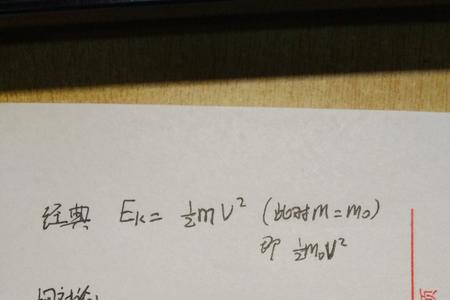 经典 Eₖ= ½mV² (此时m=m₀)
即 ½m₀V²